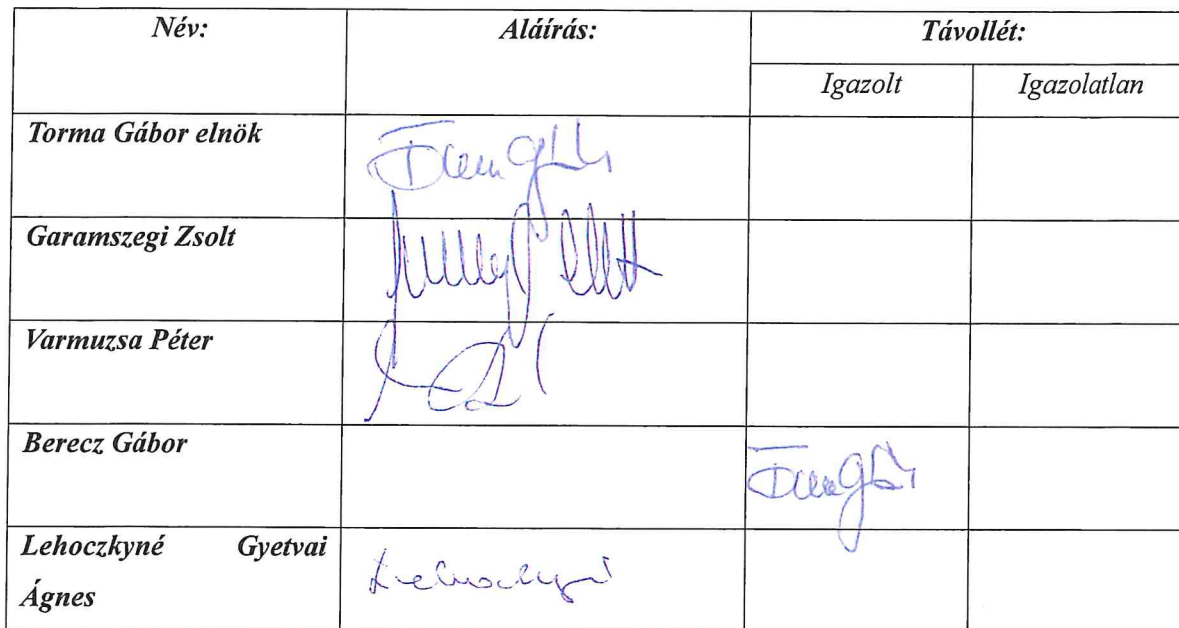 Név: Aláírás: Távollét:
Igazolt Igazolatlan
Torma Gábor elnök
Garamszegi Zsolt
Varmuzsa Péter
Berecz Gábor
Lehoczkyné Gyetvai
Ágnes